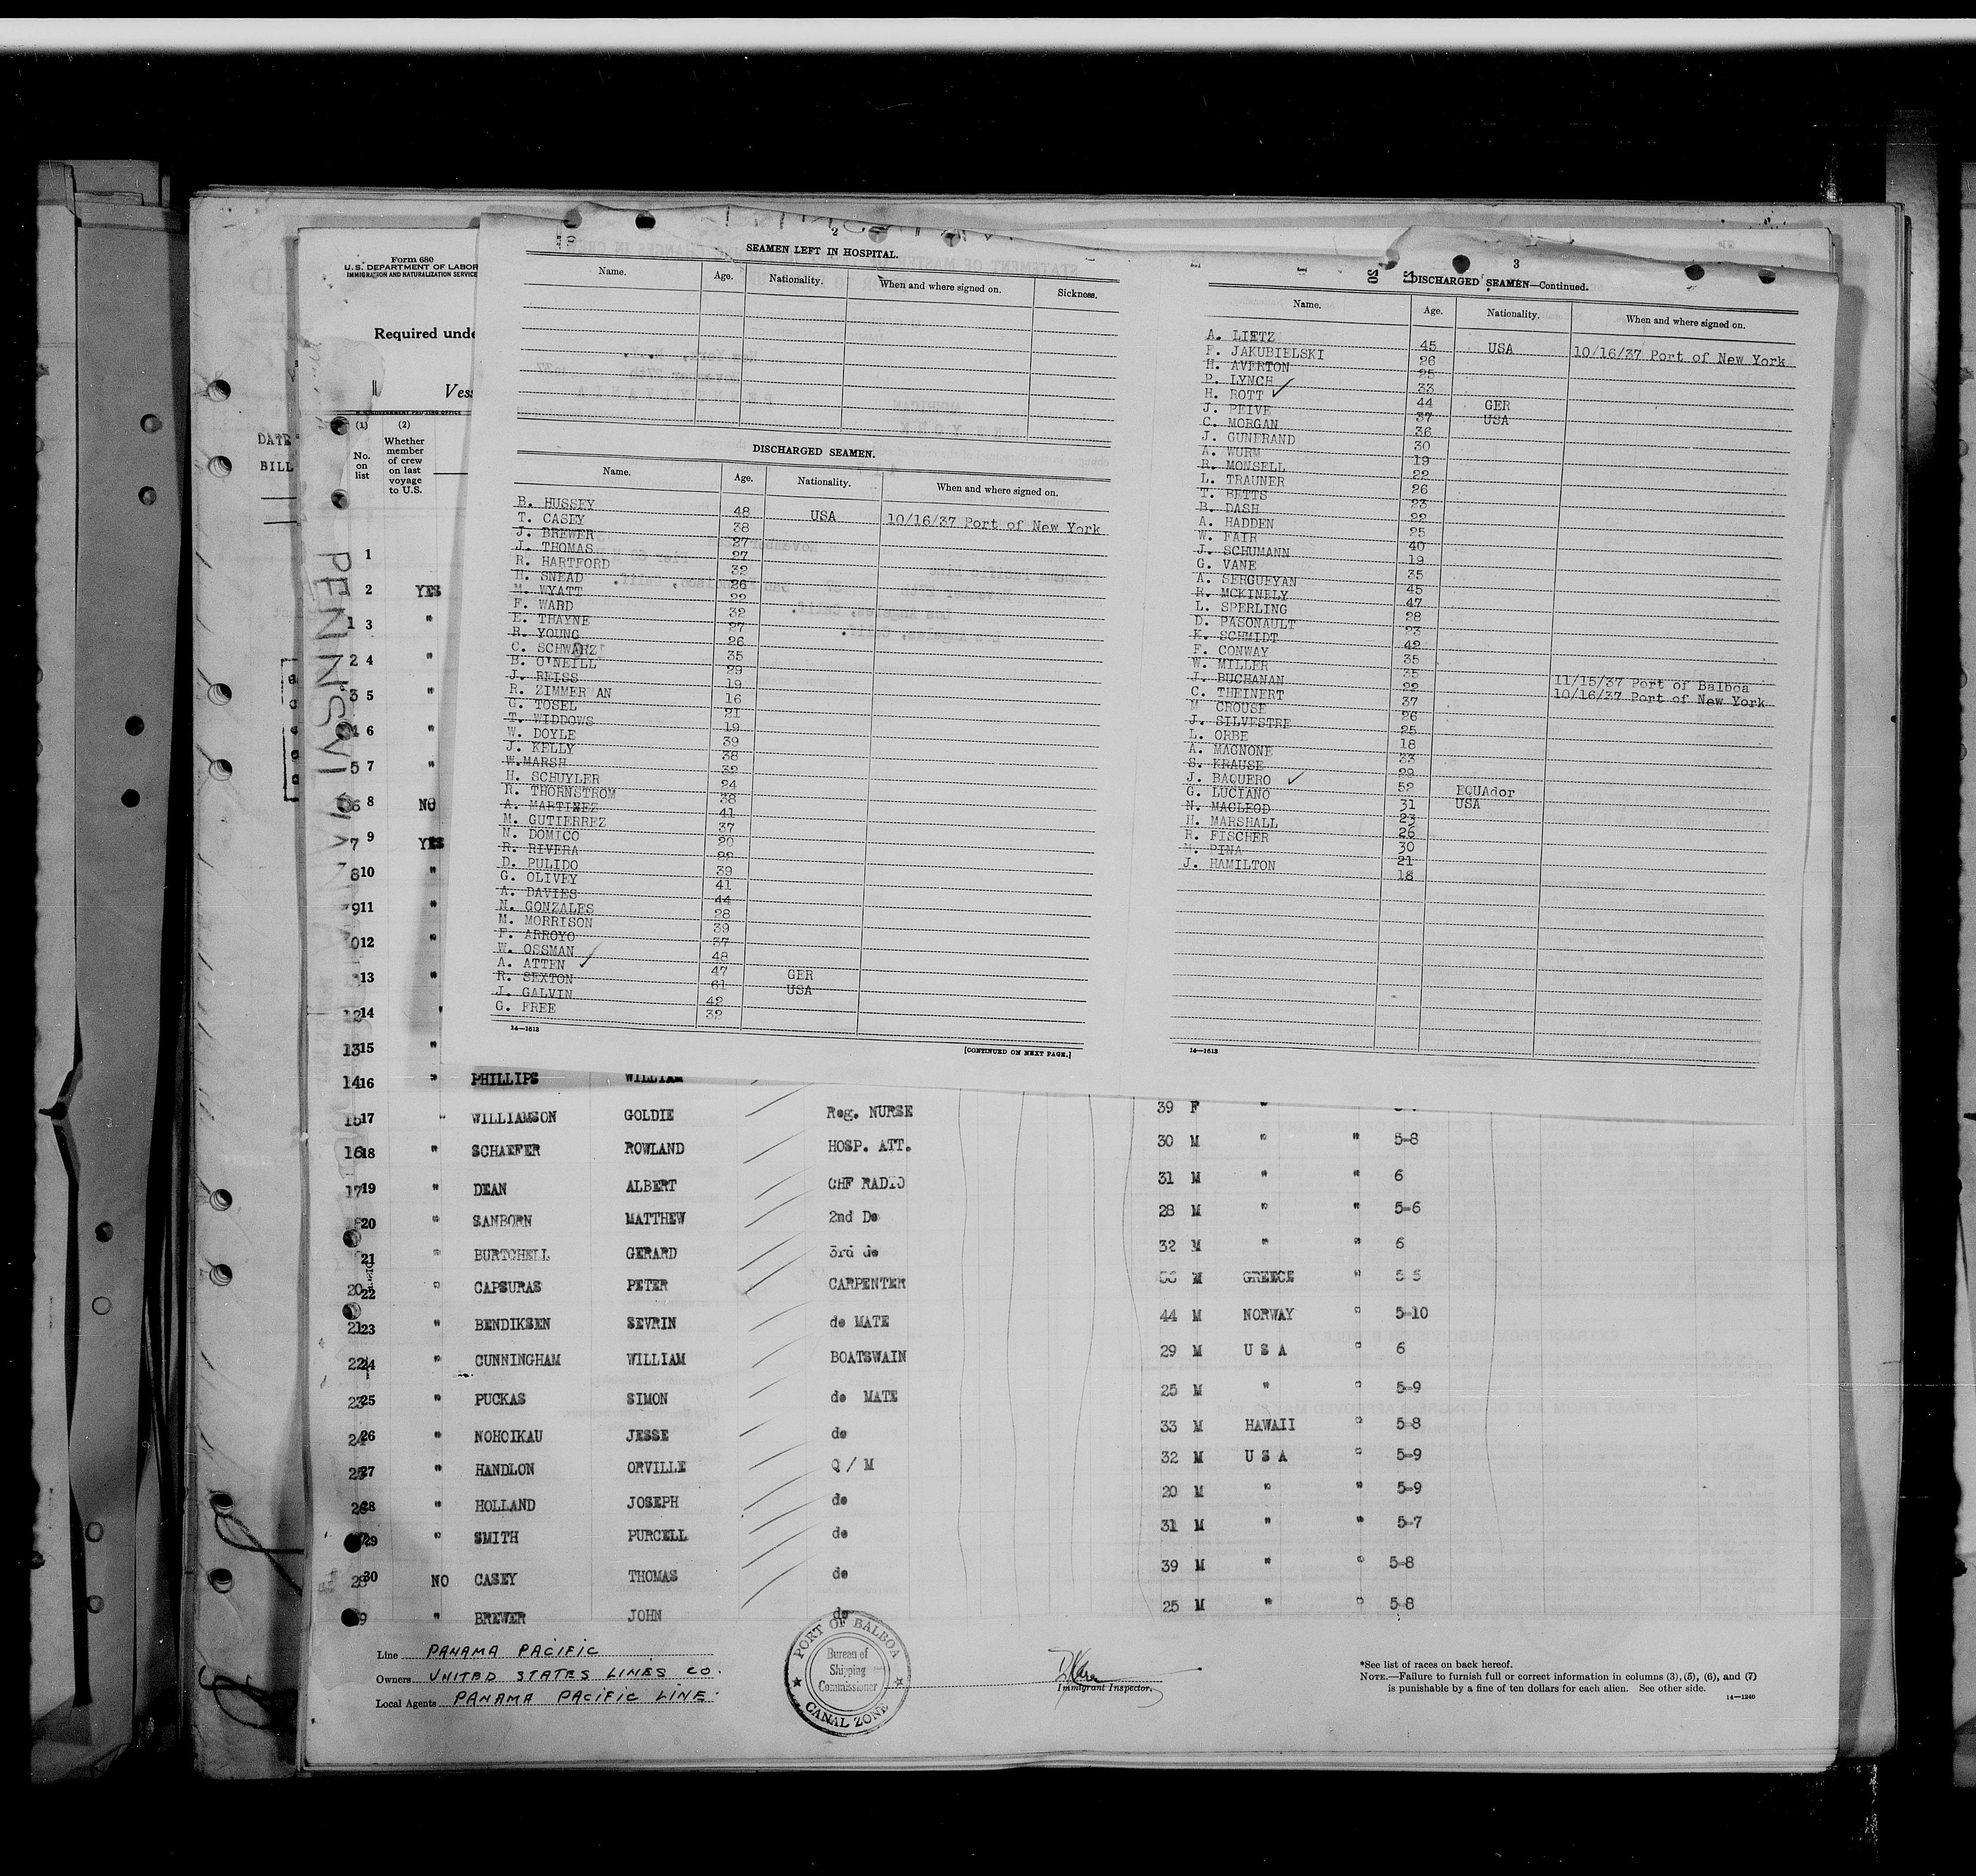 Form 680
U. S. DEPARTMENT OF LABOR
IMMIGRATION AND NATURALIZATION SERVICE
Required unde
Vess
DATE
BILL
PENNSYLVANIA
(1) (2)
No. on list
Whether member of crew on last voyage to U.S.
1
2 YES
3 "
4 "
5 "
6 "
7 "
8 NO
9 YES
10 "
11 "
12 "
13 "
14 "
15 "
2
SEAMEN LEFT IN HOSPITAL.
Name. Age. Nationality. When and where signed on. Sickness.
DISCHARGED SEAMEN.
Name. Age. Nationality. When and where signed on.
B. HUSSEY 48 USA 10/16/37 Port of New York
T. CASEY 38
J. BREWER 27
J. THOMAS 27
R. HARTFORD 32
H. SNEAD 26
M. WYATT 22
F. WARD 32
E. THAYNE 27
R. YOUNG 26
C. SCHWARZ 35
B. O'NEILL 29
J. REISS 19
R. ZIMMER AN 16
G. TOSEL 21
T. WIDDOWS 19
W. DOYLE 39
J. KELLY 38
W.MARSH 32
H. SCHUYLER 24
R. THORNSTROM 38
A. MARTINEZ 41
M. GUTIERREZ 37
N. DOMICO 20
R. RIVERA 22
D. PULIDO 39
G. OLIVEY 41
A. DAVIES 44
N. GONZALES 28
M. MORRISON 39
F. ARROYO 37
W. OSSMAN 48
A. ATTEN ✓ 47 GER
R. SEXTON 61 USA
J. GALVIN 42
G. FREE 32
14—1612
[CONTINUED ON NEXT PAGE.]
3
DISCHARGED SEAMEN—Continued.
Name. Age. Nationality. When and where signed on.
A. LIETZ 45 USA 10/16/37 Port of New York
F. JAKUBIELSKI 26
H. AVERTON 25
P. LYNCH 33
H. ROTT ✓ 44 GER
J. PEIVE 37 USA
C. MORGAN 36
J. GUNFRAND 30
A. WURM 19
R. MONSELL 22
L. TRAUNER 26
T. BETTS 23
B. DASH 22
A. HADDEN 25
W. FAIR 40
J. SCHUMANN 19
G. VANE 35
A. SERGUEYAN 45
R. MCKINELY 47
L. SPERLING 28
D. PASONAULT 23
K. SCHMIDT 42
F. CONWAY 35
W. MILLER 35
J. BUCHANAN 22 11/15/37 Port of Balboa
C. THEINERT 37 10/16/37 Port of New York
M CROUSE 26
J. SILVESTRE 25
L. ORBE 18
A. MAGNONE 33
S. KRAUSE 29
J. BAQUERO ✓ 52 EQUAdor
G. LUCIANO 31 USA
N. MACLEOD 23
H. MARSHALL 26
R. FISCHER 30
M. PINA 21
J. HAMILTON 18
14—1612
16 " PHILLIPS WILLIAM
17 " WILLIAMSON GOLDIE Reg. NURSE 39 F "
18 " SCHAEFER ROWLAND HOSP. ATT. 30 M " " 5-8
19 " DEAN ALBERT CHF RADIO 31 M " " 6
20 " SANBORN MATTHEW 2nd Do 28 M " " 5-6
21 " BURTCHELL GERARD 3rd do 32 M " " 6
22 " CAPSURAS PETER CARPENTER 56 M GREECE " 5 5
23 " BENDIKSEN SEVRIN do MATE 44 M NORWAY " 5-10
24 " CUNNINGHAM WILLIAM BOATSWAIN 29 M U S A " 6
25 " PUCKAS SIMON do MATE 25 M " " 5-9
26 " NOHOIKAU JESSE do 33 M HAWAII " 5-8
27 " HANDLON ORVILLE Q / M 32 M U S A " 5-9
28 " HOLLAND JOSEPH do 20 M " " 5-9
29 " SMITH PURCELL do 31 M " " 5-7
30 NO CASEY THOMAS do 39 M " " 5-8
" BREWER JOHN do 25 M " " 5 8
Line PANAMA PACIFIC
Owners UNITED STATES LINES CO.
Local Agents PANAMA PACIFIC LINE.
PORT OF BALBOA
Bureau of Shipping Commissioner
CANAL ZONE
Immigrant Inspector.
*See list of races on back hereof.
NOTE.—Failure to furnish full or correct information in columns (3), (5), (6), and (7)
is punishable by a fine of ten dollars for each alien. See other side.
14—1240